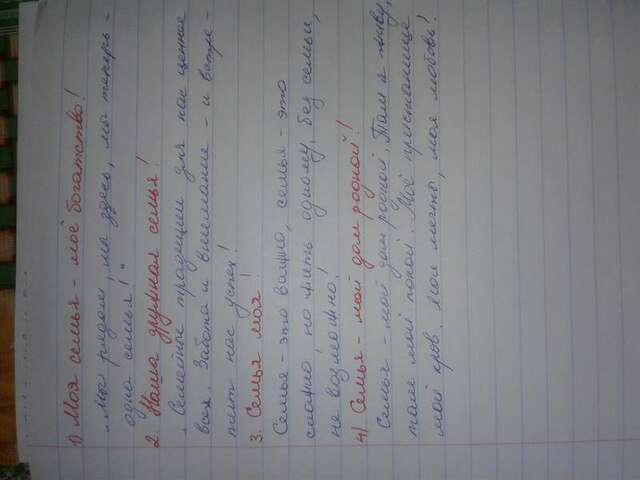 1) Моя семья - моё богатство!
„Мы рядом, мы здесь, мы теперь -
одна семья!"
2. Наша дружная семья!
Семейные традиции для нас ценнее
всех. Забота и внимание - и встре-
тит нас успех!
3. Семья моя!
Семья - это важно, семья - это
сложно, но жить одному, без семьи,
не возможно!
4) Семья - мой дом родной!
Семья - мой дом родной. Там я живу,
там мой покой. Моё пристанище
мой кров. Мои мечты, моя любовь!